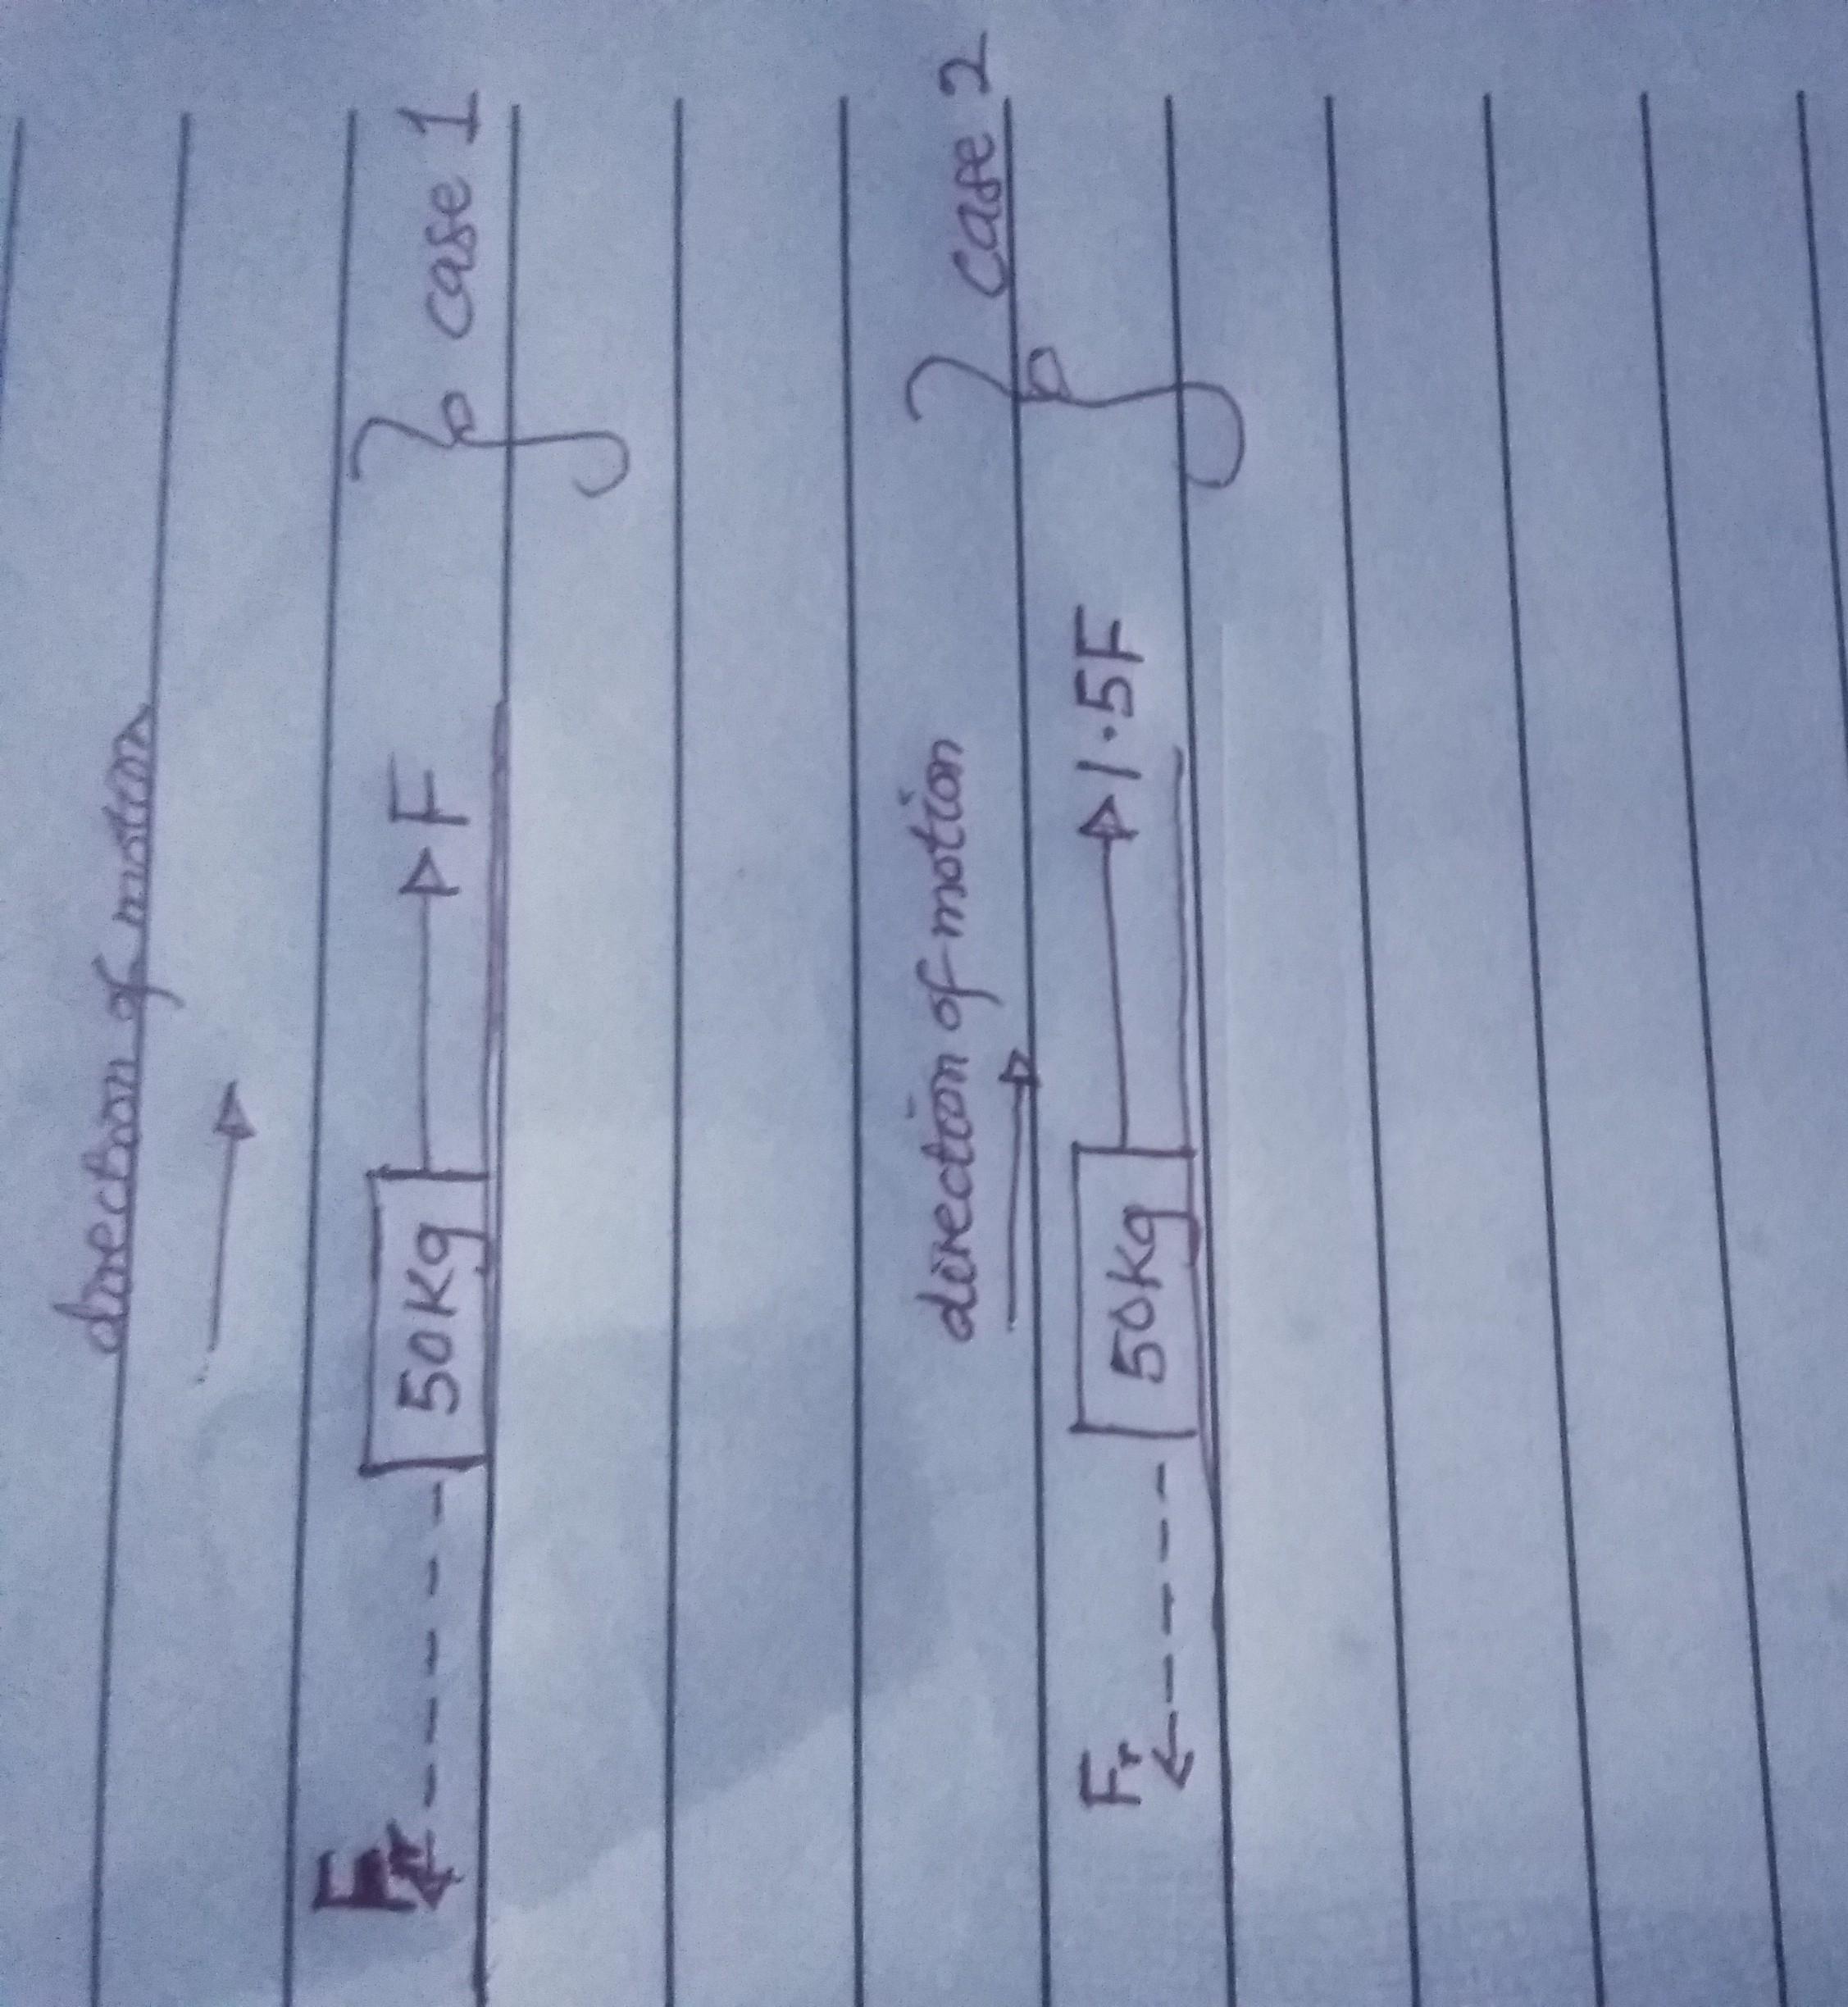 direction of motion
Fr 50Kg F
case 1
direction of motion
Fr 50Kg 1.5F
case 2